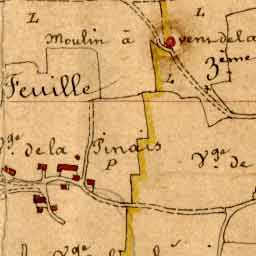 L L
Moulin à vent de la
3ème
Feuille L
Vge de la Pinais
P Vge de
Vge